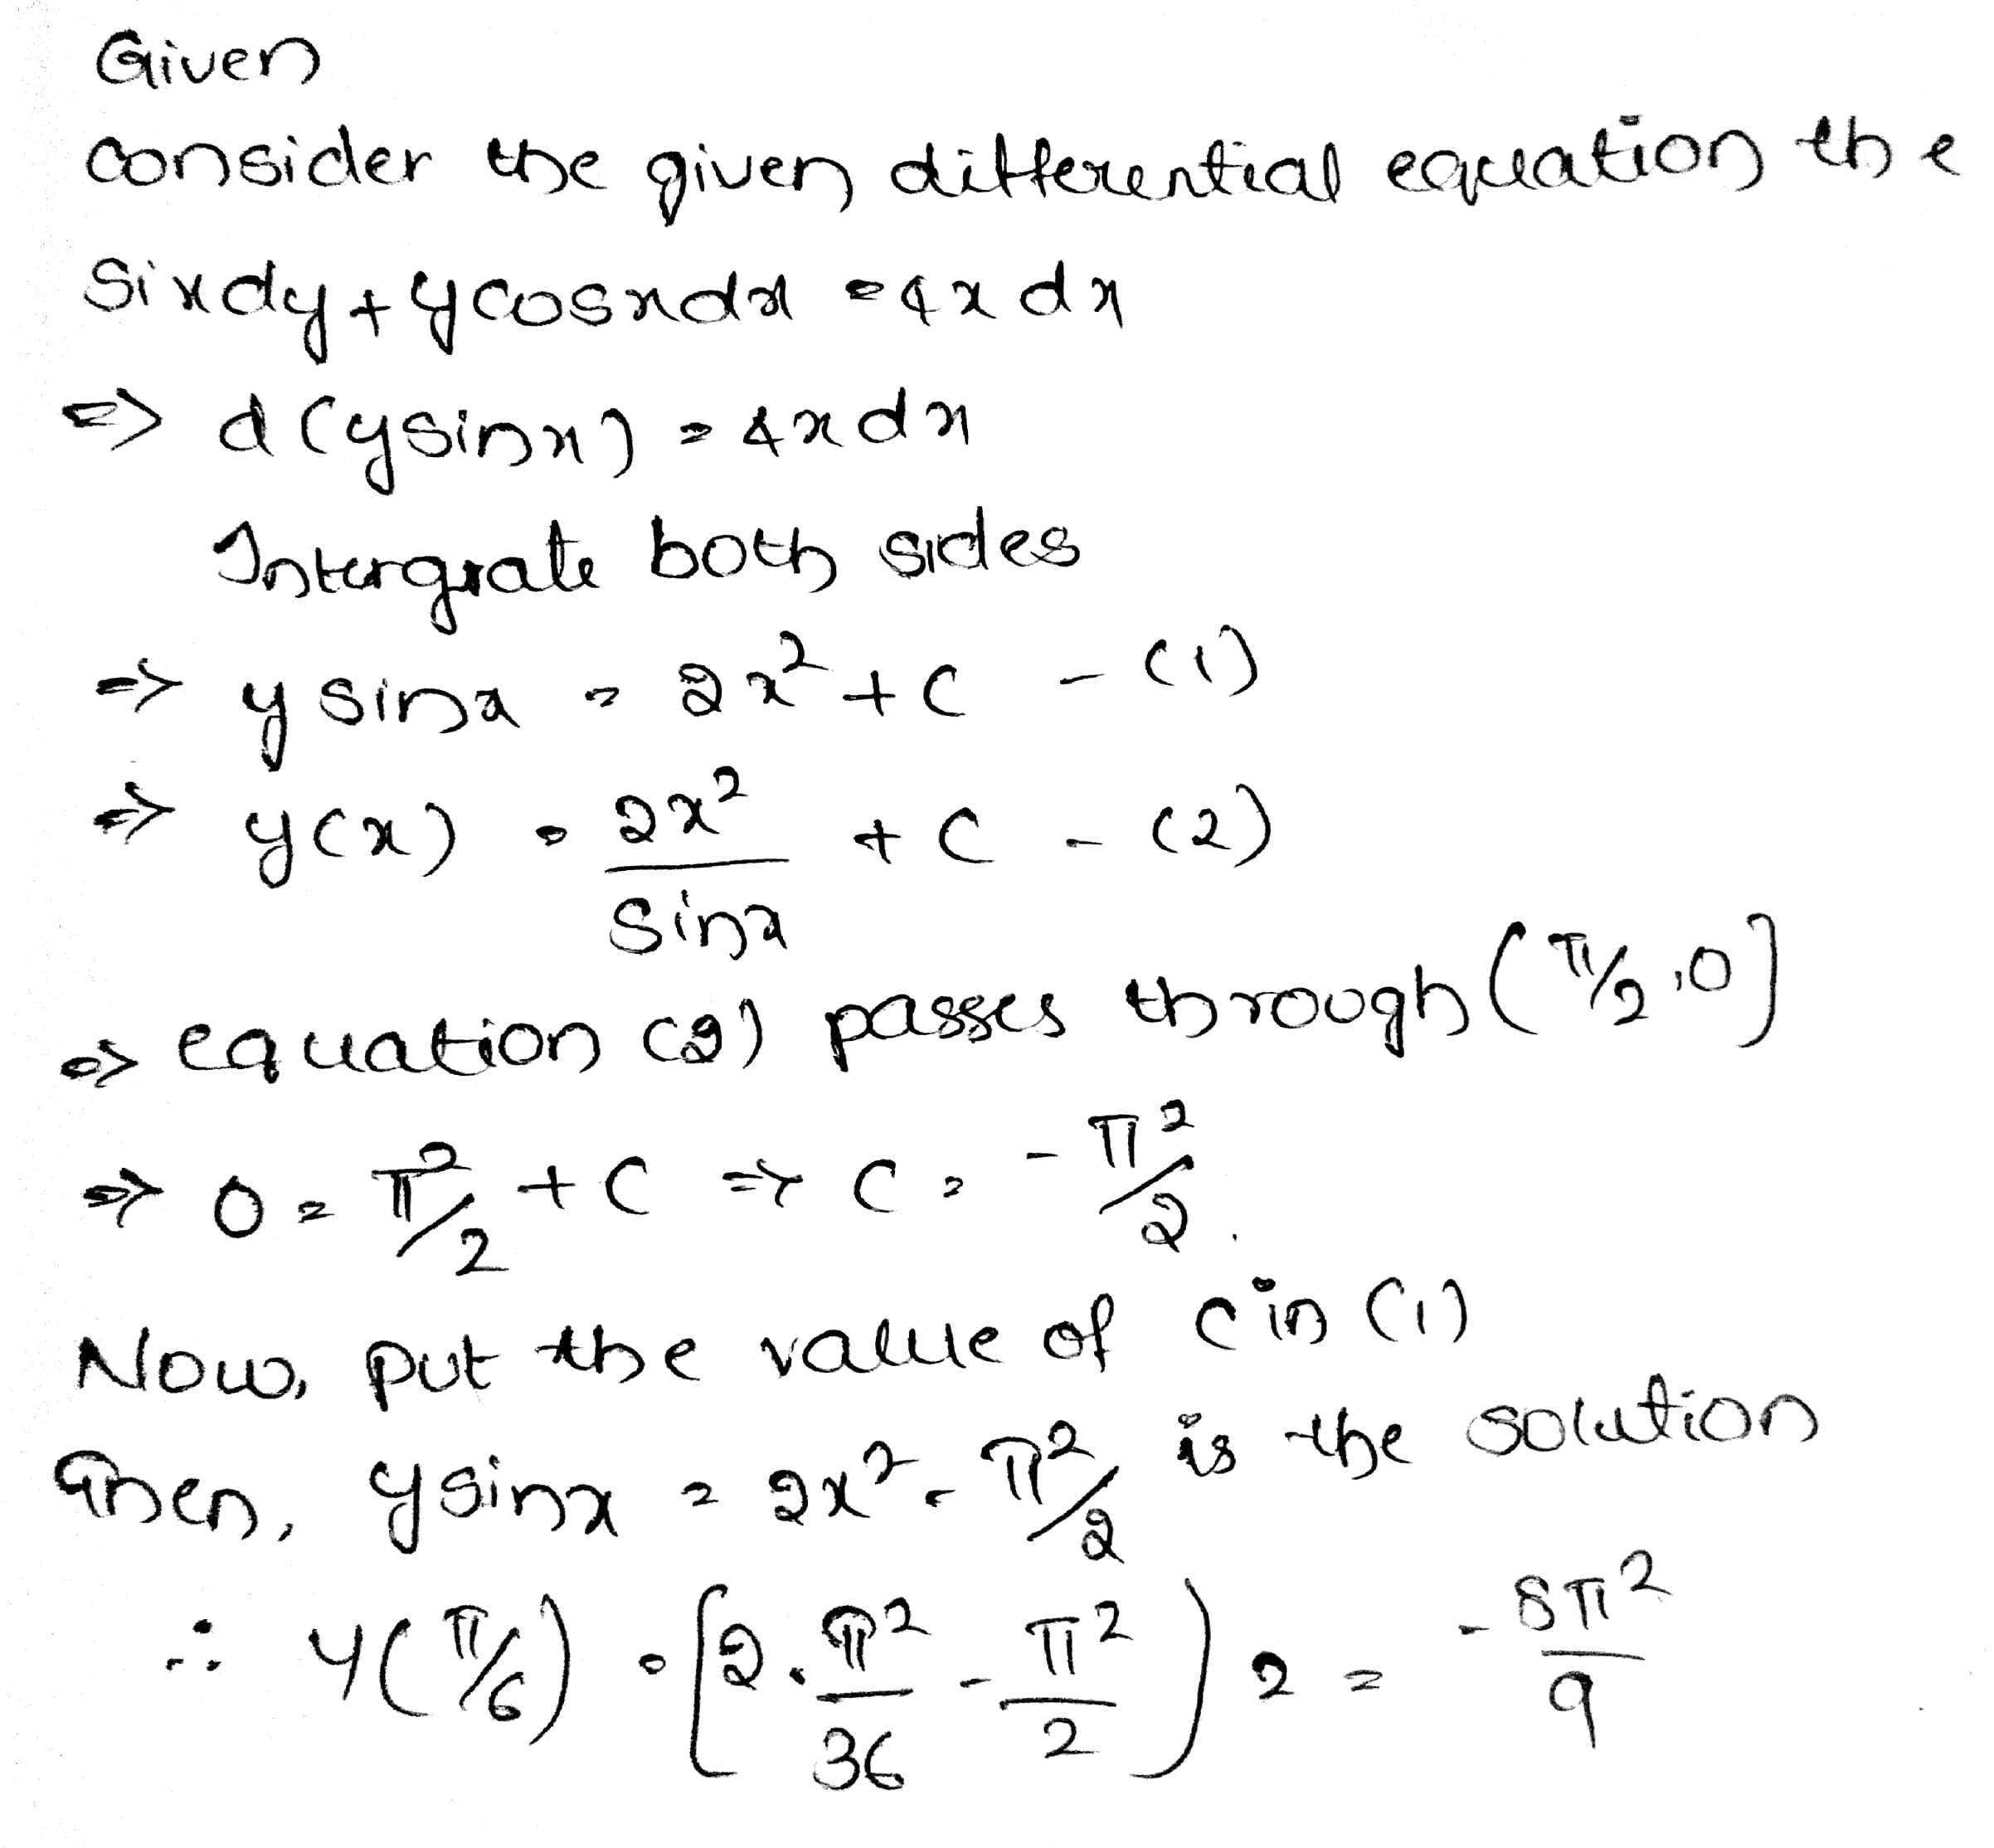 Given
consider the given differential equation the
Sixdy + ycosxdx = 4x dx
=> d(ysinx) = 4x dx
Intergrate both sides
=> y sinx = 2x² + C - (1)
=> y(x) = 2x²/sinx + C - (2)
=> equation (2) passes through (π/2, 0]
=> 0 = π²/2 + C => C = -π²/2.
Now, put the value of c in (1)
Then, ysinx = 2x² - π²/2 is the solution
∴ y(π/6) = [2. π²/36 - π²/2) 2 = -8π²/9